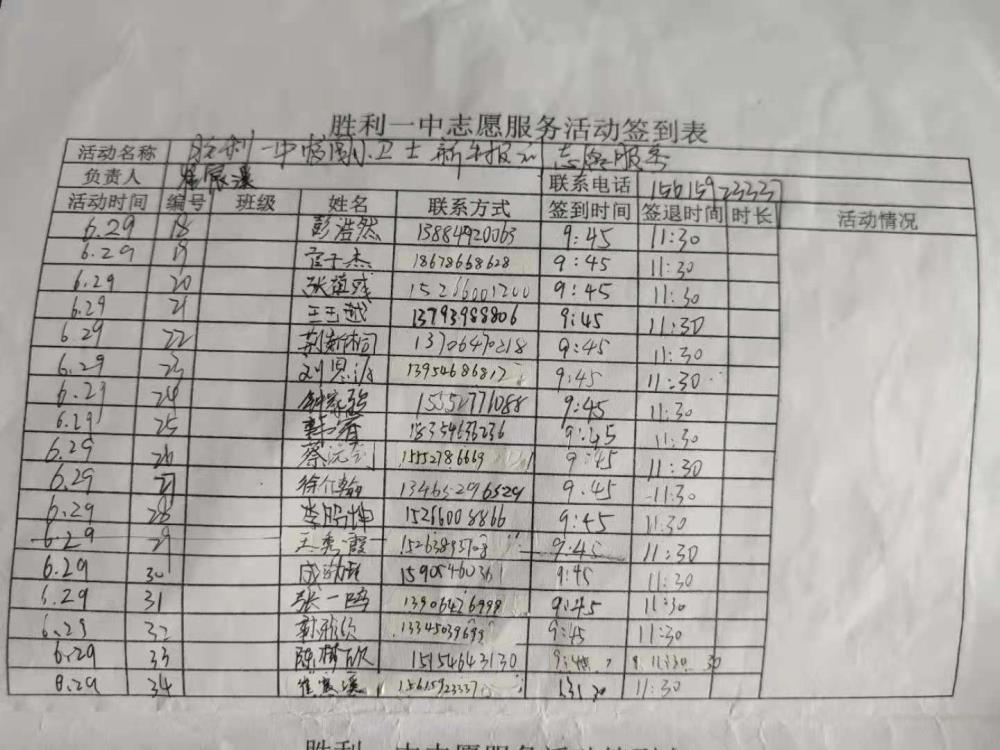 胜利一中志愿服务活动签到表
活动名称 胜利一中 小卫士 志愿服务
负责人 崔宸溪 联系电话 15615923337
活动时间 编号 班级 姓名 联系方式 签到时间 签退时间 时长 活动情况
6.29 18 彭浩然 13884920063 9:45 11:30
6.29 19 子杰 18678668628 9:45 11:30
6.29 20 张 15266001200 9:45 11:30
6.29 21 王玉越 13793988806 9:45 11:30
6.29 22 13706470218 9:45 11:30
6.29 23 刘恩 13954686812 9:45 11:30
6.29 24 15552771088 9:45 11:30
6.29 25 18354636236 9:45 11:30
6.29 26 蔡沅 15552786669 9:45 11:30
6.29 27 徐 翰 13465296529 9:45 11:30
6.29 28 坤 15266008866 9:45 11:30
6.29 29 王秀霞 9:45 11:30
6.29 30 15905460361 9:45 11:30
6.29 31 张一鸣 13906426998 9:45 11:30
6.29 32 9:45 11:30
6.29 33 陈 欣 15154643130 9:45 11:30
6.29 34 崔宸溪 15615923337 11:30
胜利一中志愿服务活动签到表